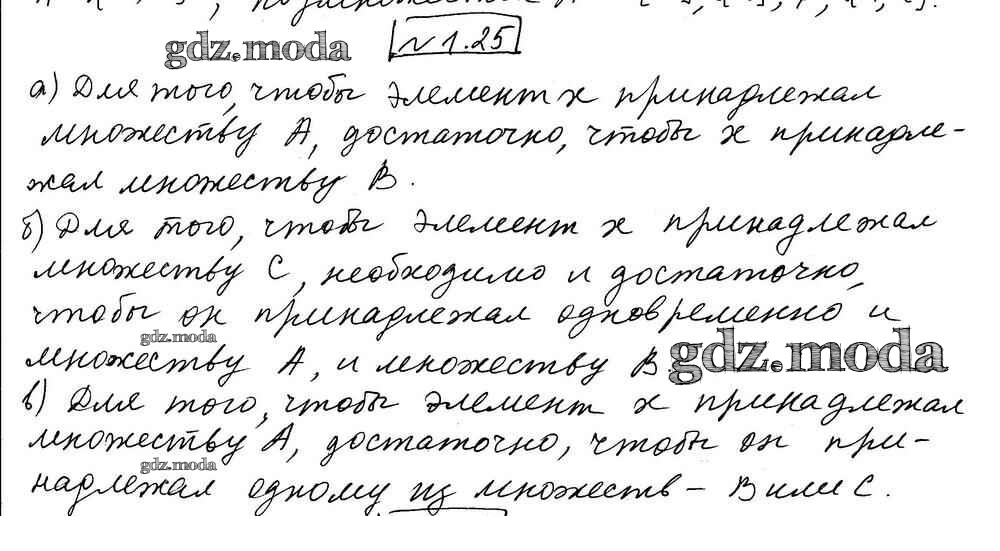 gdz.moda
№ 1.25
а) Для того, чтобы элемент x принадлежал
множеству A, достаточно, чтобы x принадле-
жал множеству B.
б) Для того, чтобы элемент x принадлежал
множеству C, необходимо и достаточно,
чтобы он принадлежал одновременно и
gdz.moda
множеству A, и множеству B
gdz.moda
в) Для того, чтобы элемент x принадлежал
множеству A, достаточно, чтобы он при-
gdz.moda
надлежал одному из множеств – B или C.